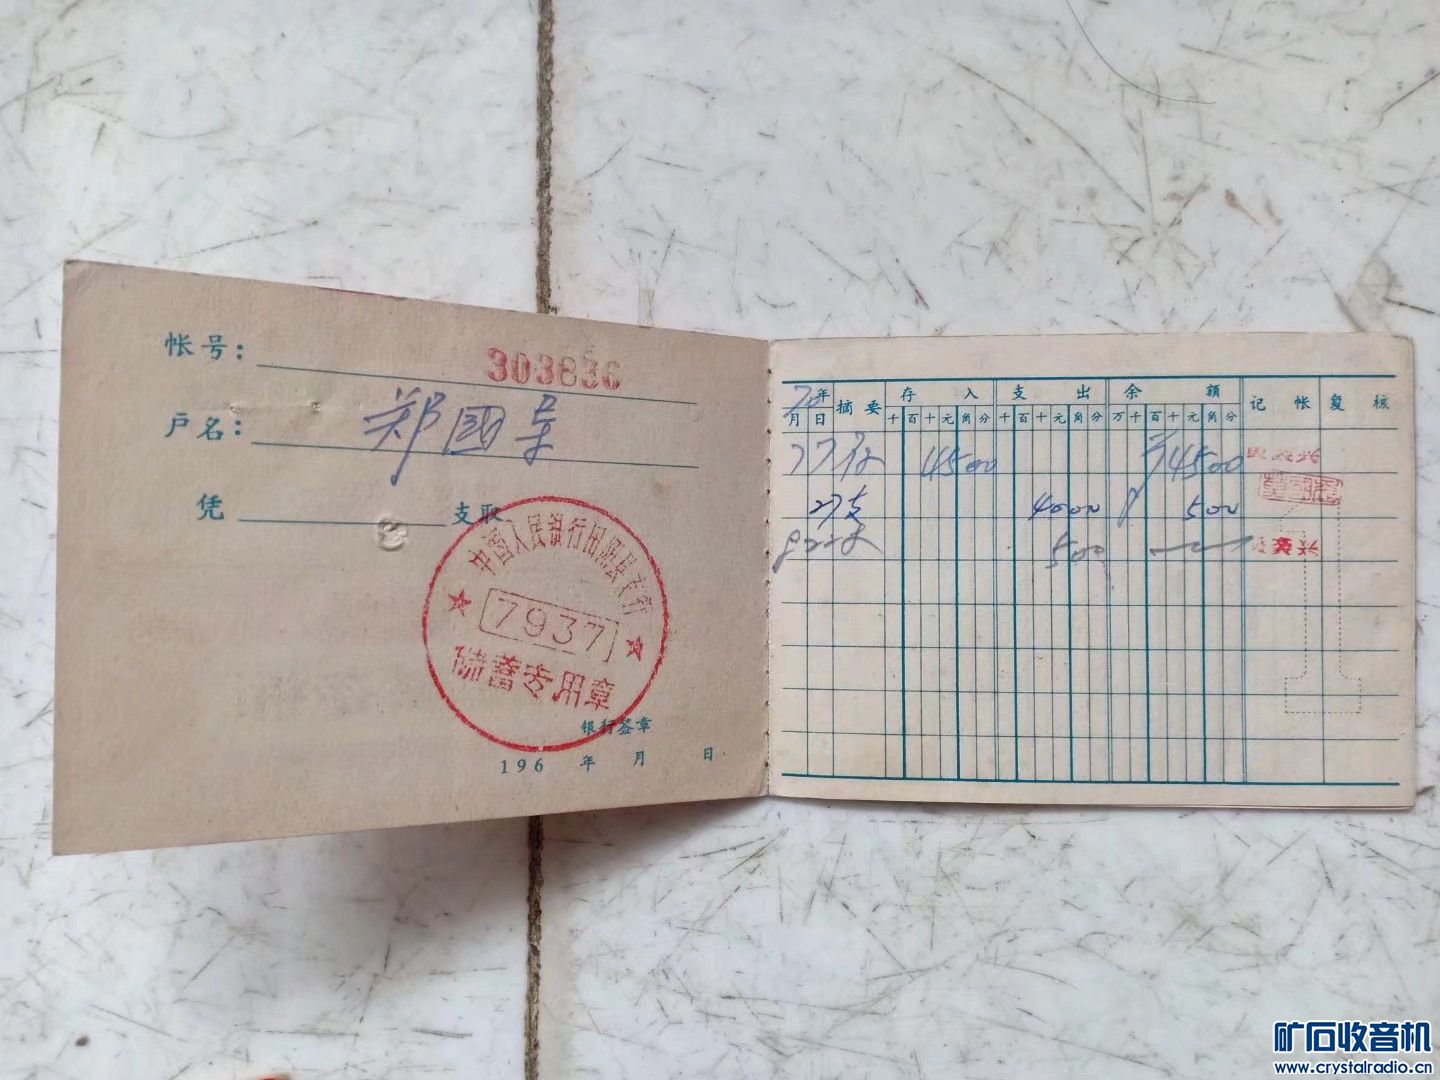 帐号：303636
户名：郑國
凭 支取
中国人民银行 县支行
7937
储蓄专用章
银行签章
196 年 月 日
70年 摘要 存入 支出 余额 记帐 复核
月 日 千百十元角分 千百十元角分 万千百十元角分
7 7 存 4500 4500
27 支 4000 500
8 22 支 500
矿石收音机
www.crystalradio.cn